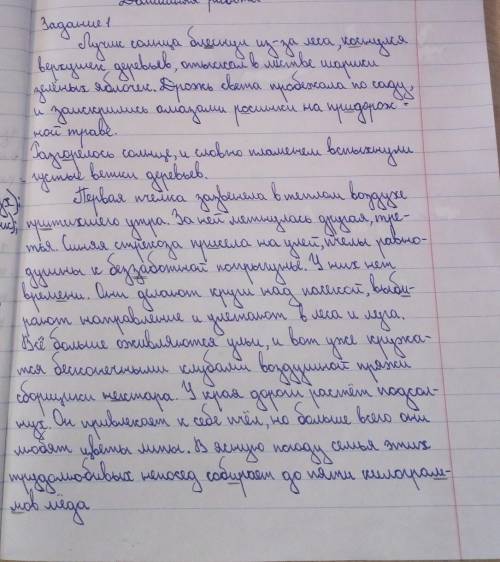 Домашняя работа.
Задание 1
Лучик солнца блеснул из-за леса, коснулся
верхушек деревьев, отыскал в листве шарики
зелёных яблочек. Дрожь света пробежала по саду,
и заискрились алмазами росинки на придорож-
ной траве.
Разгорелось солнце, и словно пламенем вспыхнули
густые ветки деревьев.
Первая пчёлка зазвенела в теплом воздухе
притихшего утра. За ней метнулась другая, тре-
тья. Синяя стрекоза присела на улей, пчелы равно-
душны к беззаботной попрыгунье. У них нет
времени. Они делают круги над пасекой, выби-
рают направление и улетают в леса и луга.
Всё больше оживляются ульи, и вот уже кружа-
тся бесконечными клубами воздушной пряжи
сборщики нектара. У края дороги растёт подсол-
нух. Он привлекает к себе пчёл, но больше всего они
любят цветы липы. В ясную погоду семья этих
трудолюбивых непосед собирает до пяти килограм-
мов мёда